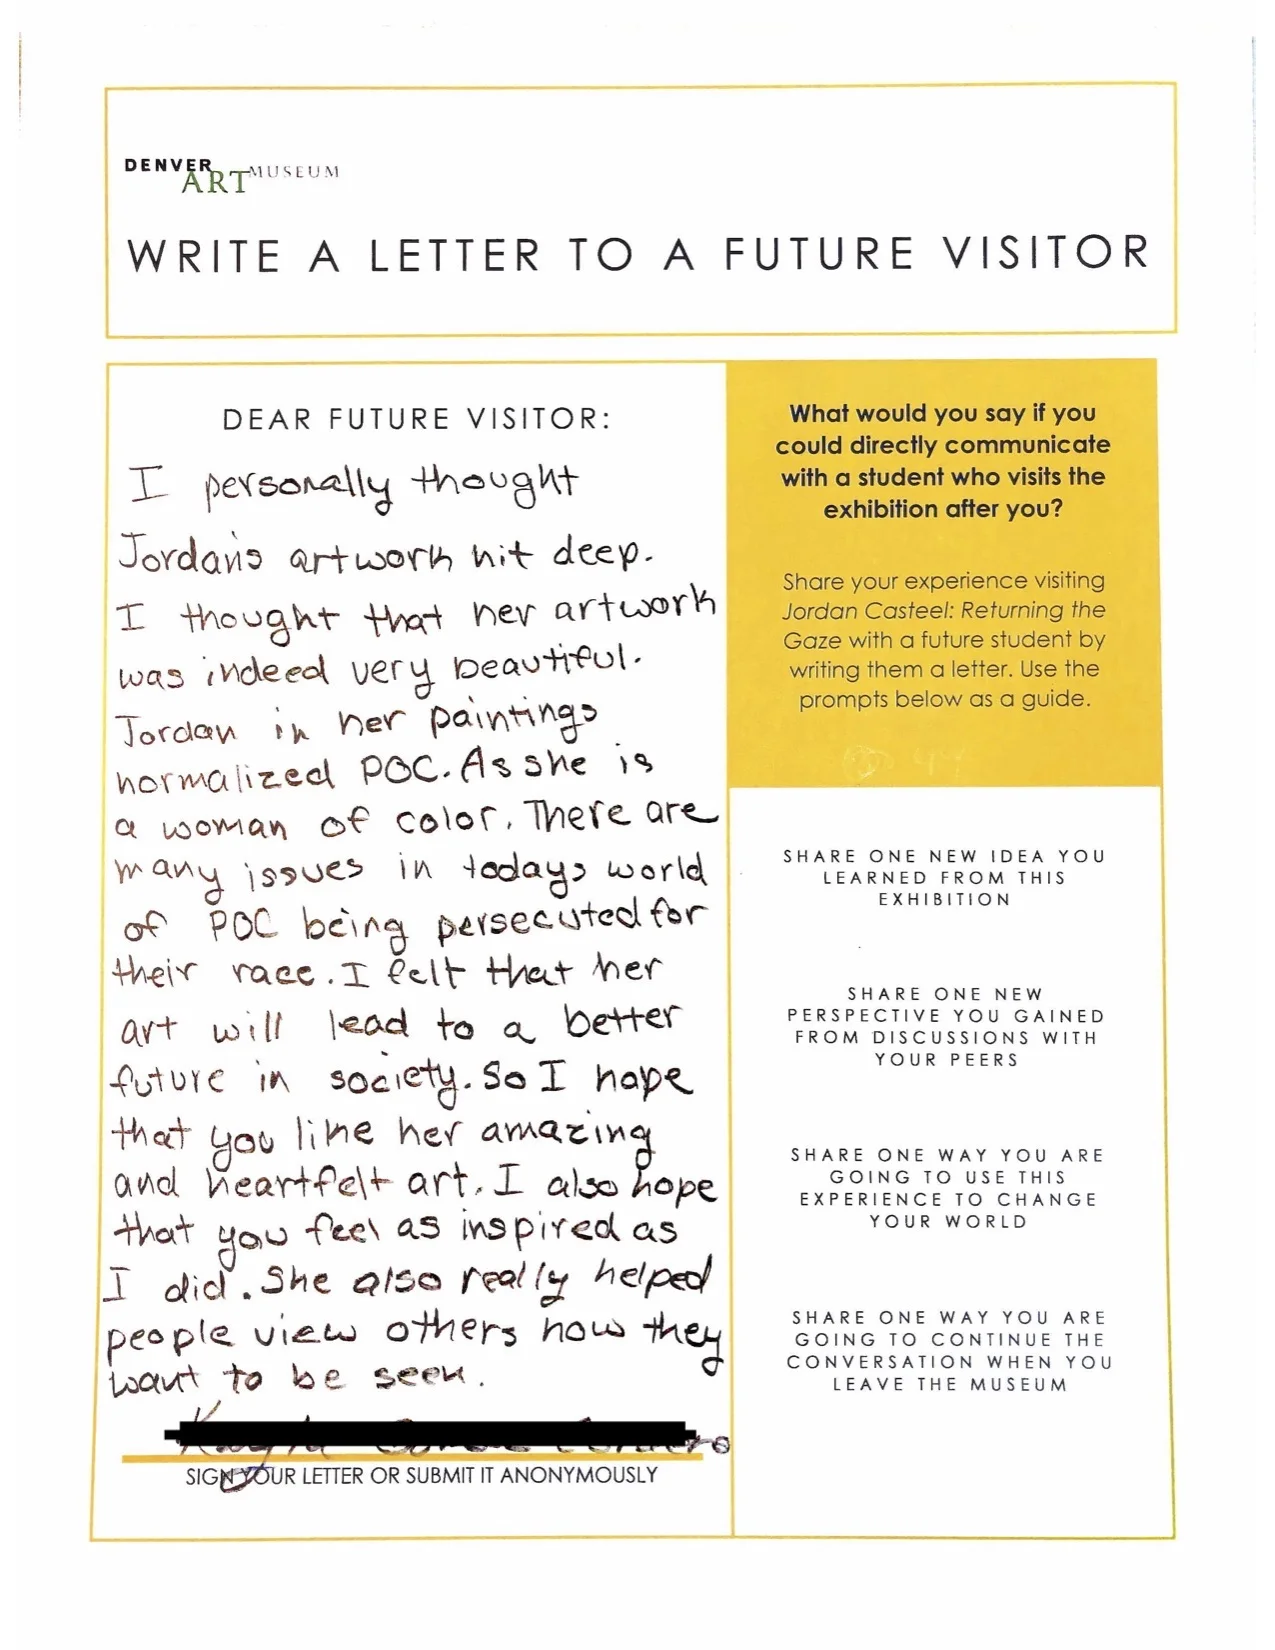 DENVER
ART MUSEUM
WRITE A LETTER TO A FUTURE VISITOR
DEAR FUTURE VISITOR:
I personally thought
Jordan's artwork hit deep.
I thought that her artwork
was indeed very beautiful.
Jordan in her paintings
normalized POC. As she is
a woman of color. There are
many issues in todays world
of POC being persecuted for
their race. I felt that her
art will lead to a better
future in society. So I hope
that you like her amazing
and heartfelt art. I also hope
that you feel as inspired as
I did. She also really helped
people view others how they
want to be seen.
SIGN YOUR LETTER OR SUBMIT IT ANONYMOUSLY
What would you say if you
could directly communicate
with a student who visits the
exhibition after you?
Share your experience visiting
Jordan Casteel: Returning the
Gaze with a future student by
writing them a letter. Use the
prompts below as a guide.
SHARE ONE NEW IDEA YOU
LEARNED FROM THIS
EXHIBITION
SHARE ONE NEW
PERSPECTIVE YOU GAINED
FROM DISCUSSIONS WITH
YOUR PEERS
SHARE ONE WAY YOU ARE
GOING TO USE THIS
EXPERIENCE TO CHANGE
YOUR WORLD
SHARE ONE WAY YOU ARE
GOING TO CONTINUE THE
CONVERSATION WHEN YOU
LEAVE THE MUSEUM